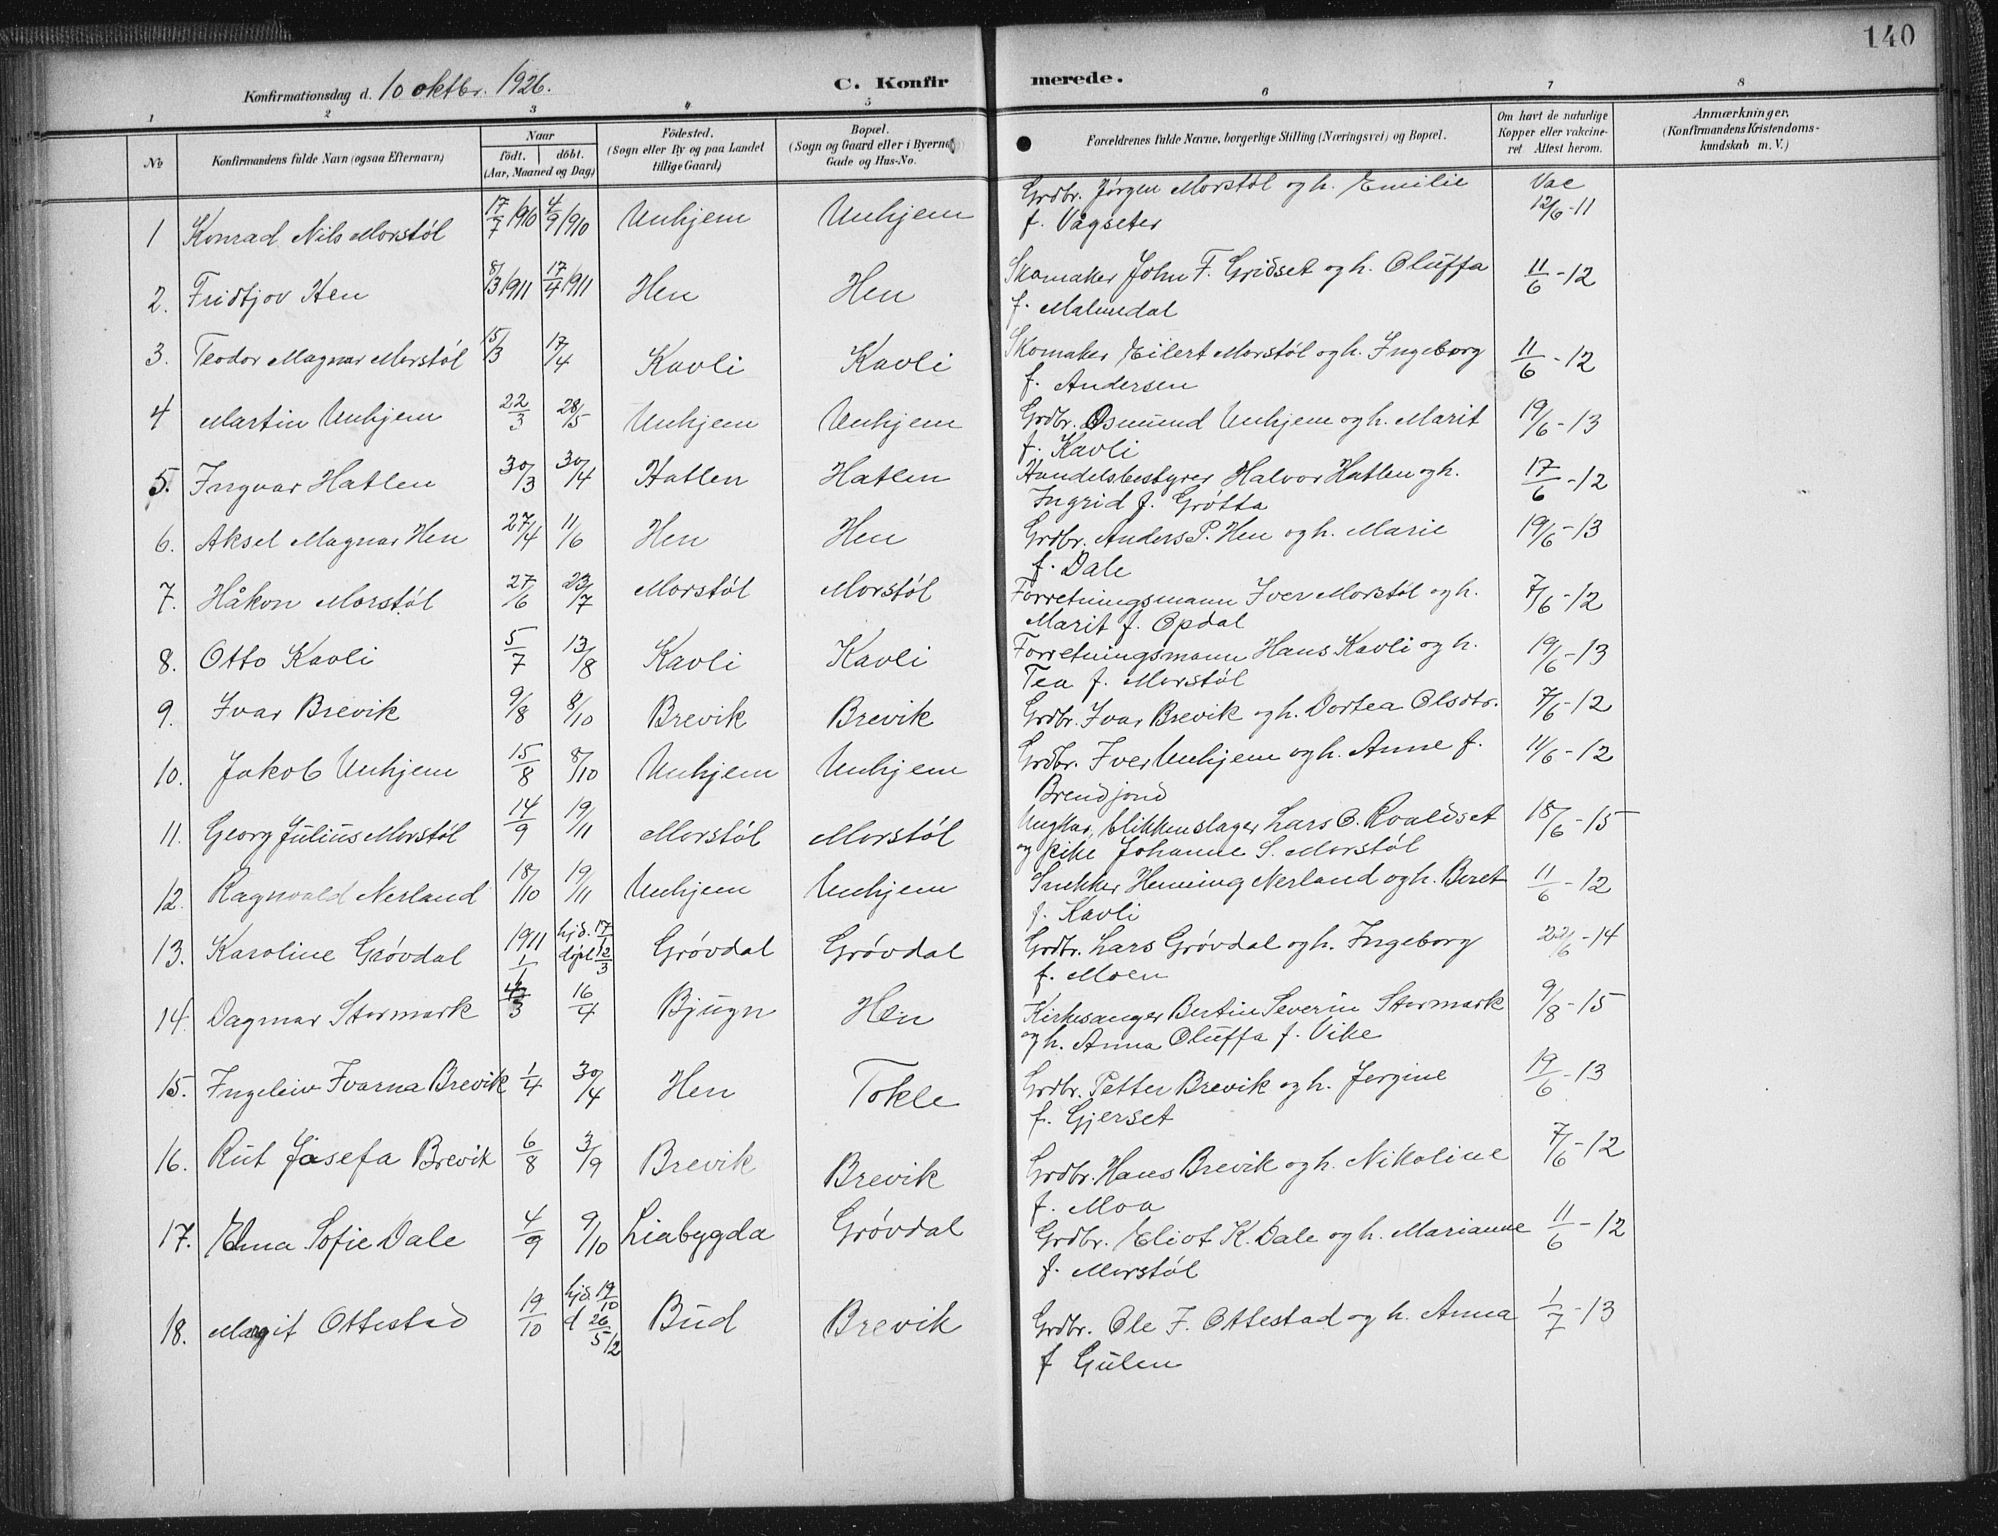 140
Konfirmationsdag d. 10 oktbr. 1926.
C. Konfirmerede.
1 2 3 4 5 6 7 8
No
Konfirmandens fulde Navn (ogsaa Efternavn)
Naar
födt. döbt.
(Aar, Maaned og Dag)
Födested.
(Sogn eller By og paa Landet
tillige Gaard)
Bopæl.
(Sogn og Gaard eller i Byerne
Gade og Hus-No.
Forældrenes fulde Navne, borgerlige Stilling (Næringsvei) og Bopæl.
Om havt de naturlige
Kopper eller vakcine-
ret Attest herom.
Anmærkninger.
(Konfirmandens Kristendoms-
kundskab m. V.)
1 Konrad Nils Morstøl 17/7 1910 4/9 1910 Unhjem Unhjem Grdbr. Jørgen Morstøl og h. Emilie Vac
f. Vågseter 12/6-11
2. Fridtjov Hen 8/3 1911 17/4 1911 Hen Hen Skomaker John F. Gridset og h. Oluffa 11/6-12
f. Malmedal
3. Teodor Magnar Morstøl 15/3 17/4 Kavli Kavli Skomaker Eilert Morstøl og h. Ingeborg 11/6-12
f. Andersen
4 Martin Unhjem 22/3 28/5 Unhjem Unhjem Grdbr. Osmund Unhjem og h. Marit 19/6-13
f. Kavli
5. Ingvar Hatlen 30/3 30/4 Hatlen Hatlen Handelsbestyrer Halvor Hatlen og h. 17/6-12
Ingrid f. Grøtta
6. Aksel Magnar Hen 27/4 11/6 Hen Hen Grdbr. Anders P. Hen og h. Marie 19/6-13
f. Dale
7. Håkon Morstøl 27/6 23/7 Morstøl Morstøl Forretningsmann Iver Morstøl og h. 7/6-12
Marit f. Opdal
8. Otto Kavli 5/7 13/8 Kavli Kavli Forretningsmann Hans Kavli og h. 19/6-13
Tea f. Morstøl
9. Ivar Brevik 9/8 8/10 Brevik Brevik Grdbr. Ivar Brevik og h. Dortea Olsdtr. 7/6-12
10. Jakob Unhjem 15/8 8/10 Unhjem Unhjem Grdbr. Iver Unhjem og h. Anne f. 11/6-12
Brendjord
11. Georg Julius Morstøl 14/9 19/11 Morstøl Morstøl Ungkar, blikkenslager Lars O. Roaldset 18/6-15
og pike Johanne S. Morstøl
12. Ragnvald Nerland 18/10 19/11 Unhjem Unhjem Snekker Henning Nerland og h. Beret 11/6-12
f. Kavli
13. Karoline Grøvdal 1911 1/1 hjd. 17/1 døpt 12/3 Grøvdal Grøvdal Grdbr. Lars Grøvdal og h. Ingeborg 22/6-14
f. Moen
14. Dagmar Stormark /3 16/4 Bjugn Hen Kirkesanger Bertin Severin Stormark 9/8-15
og h. Anna Oluffa f. Vike
15. Ingeleiv Ivarna Brevik 1/4 30/4 Hen Tokle Grdbr. Petter Brevik og h. Jørgine 19/6-13
f. Gjerset
16. Rut Josefa Brevik 6/8 3/9 Brevik Brevik Grdbr. Hans Brevik og h. Nikoline 7/6-12
f. Moa
17. Elma Sofie Dale 4/9 9/10 Liabygda Grøvdal Grdbr. Eliot K. Dale og h. Marianne 11/6-12
f. Morstøl
18. Margit Ottestad 19/10 hjd. 19/10 d 26/5 12 Bud Brevik Grdbr. Ole F. Ottestad og h. Anna 1/7-13
f Gulen